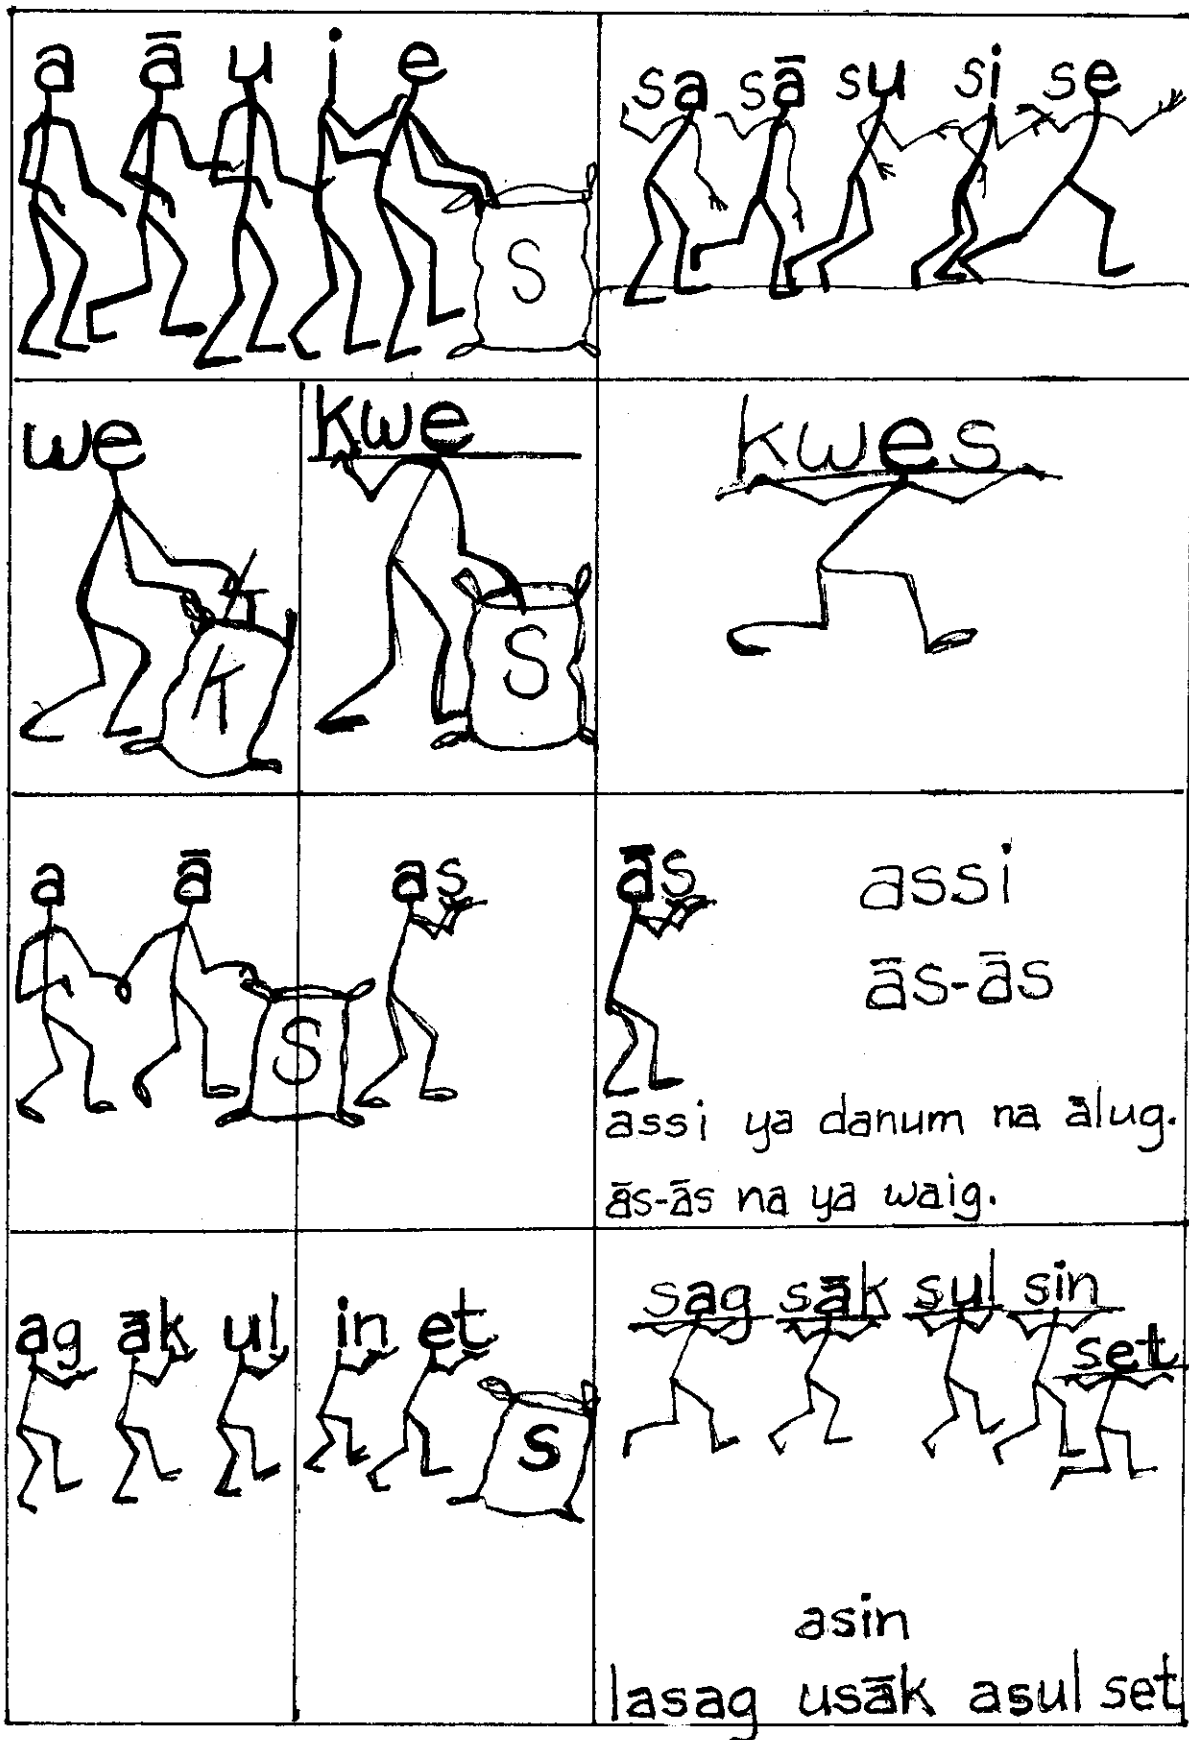 a ā u i e
S
sa sā su si se
we
k
k
kwe
S
kwes
a ā
S
as
ās
assi
ās-ās
assi ya danum na ālug.
ās-ās na ya waig.
ag āk ul in et
S
sag sāk sul sin
set
asin
lasag usāk asul set